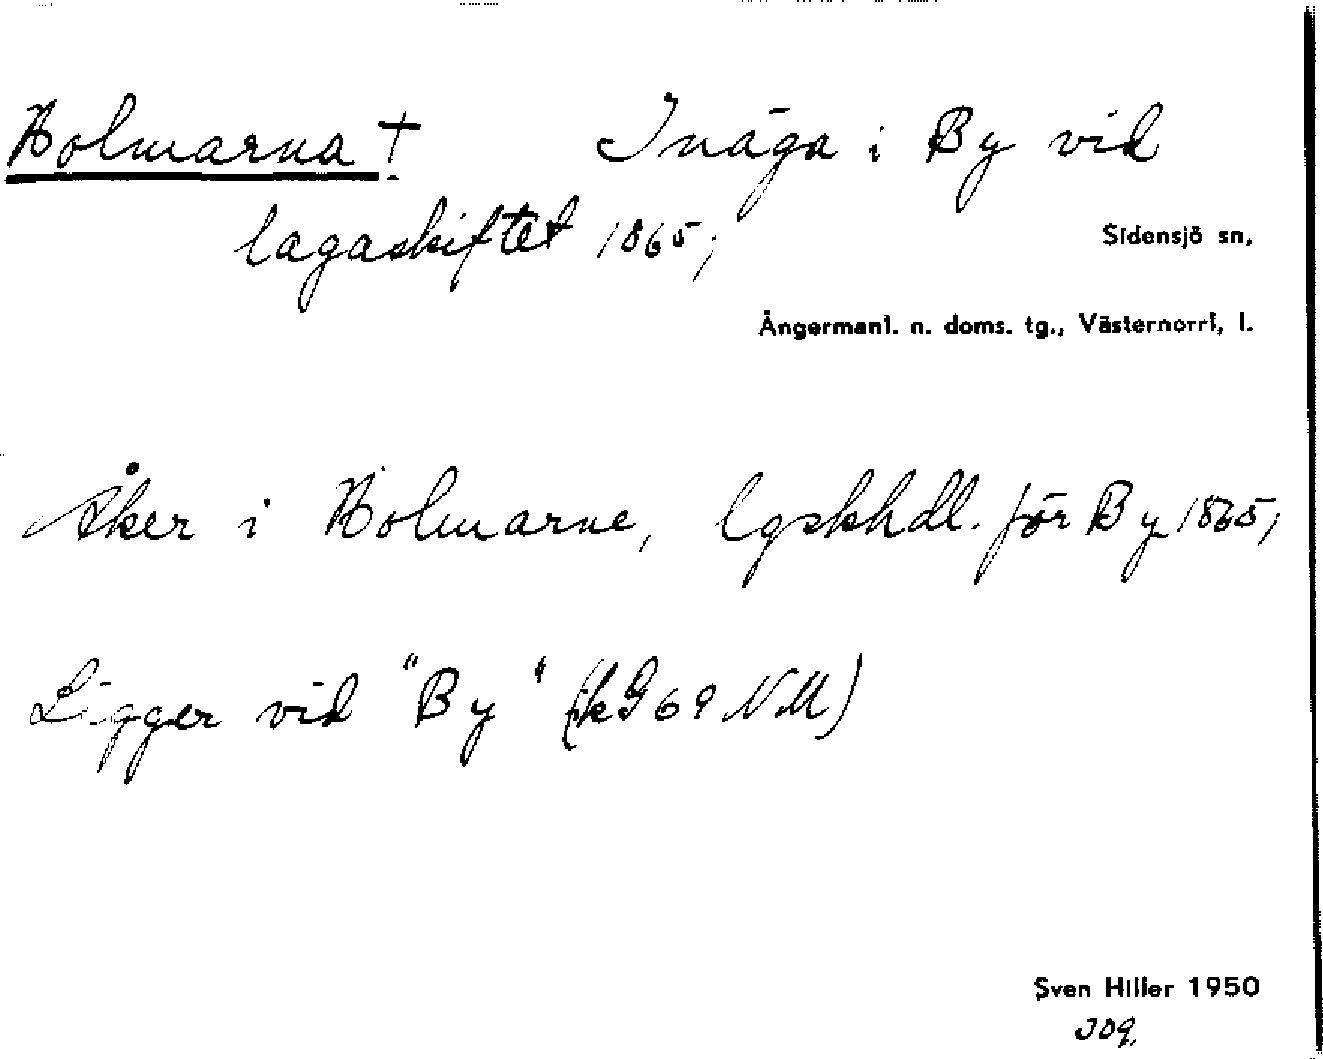 Holmarna † Inäga i By vid
lagaskiftet 1865;
Sidensjö sn,
Ångermanl. n. doms. tg., Västernorrl, l.
Åker i Holmarne, lgskhdl. för By 1865;
Ligger vid "By" (kG 69 NM)
Sven Hiller 1950
309.